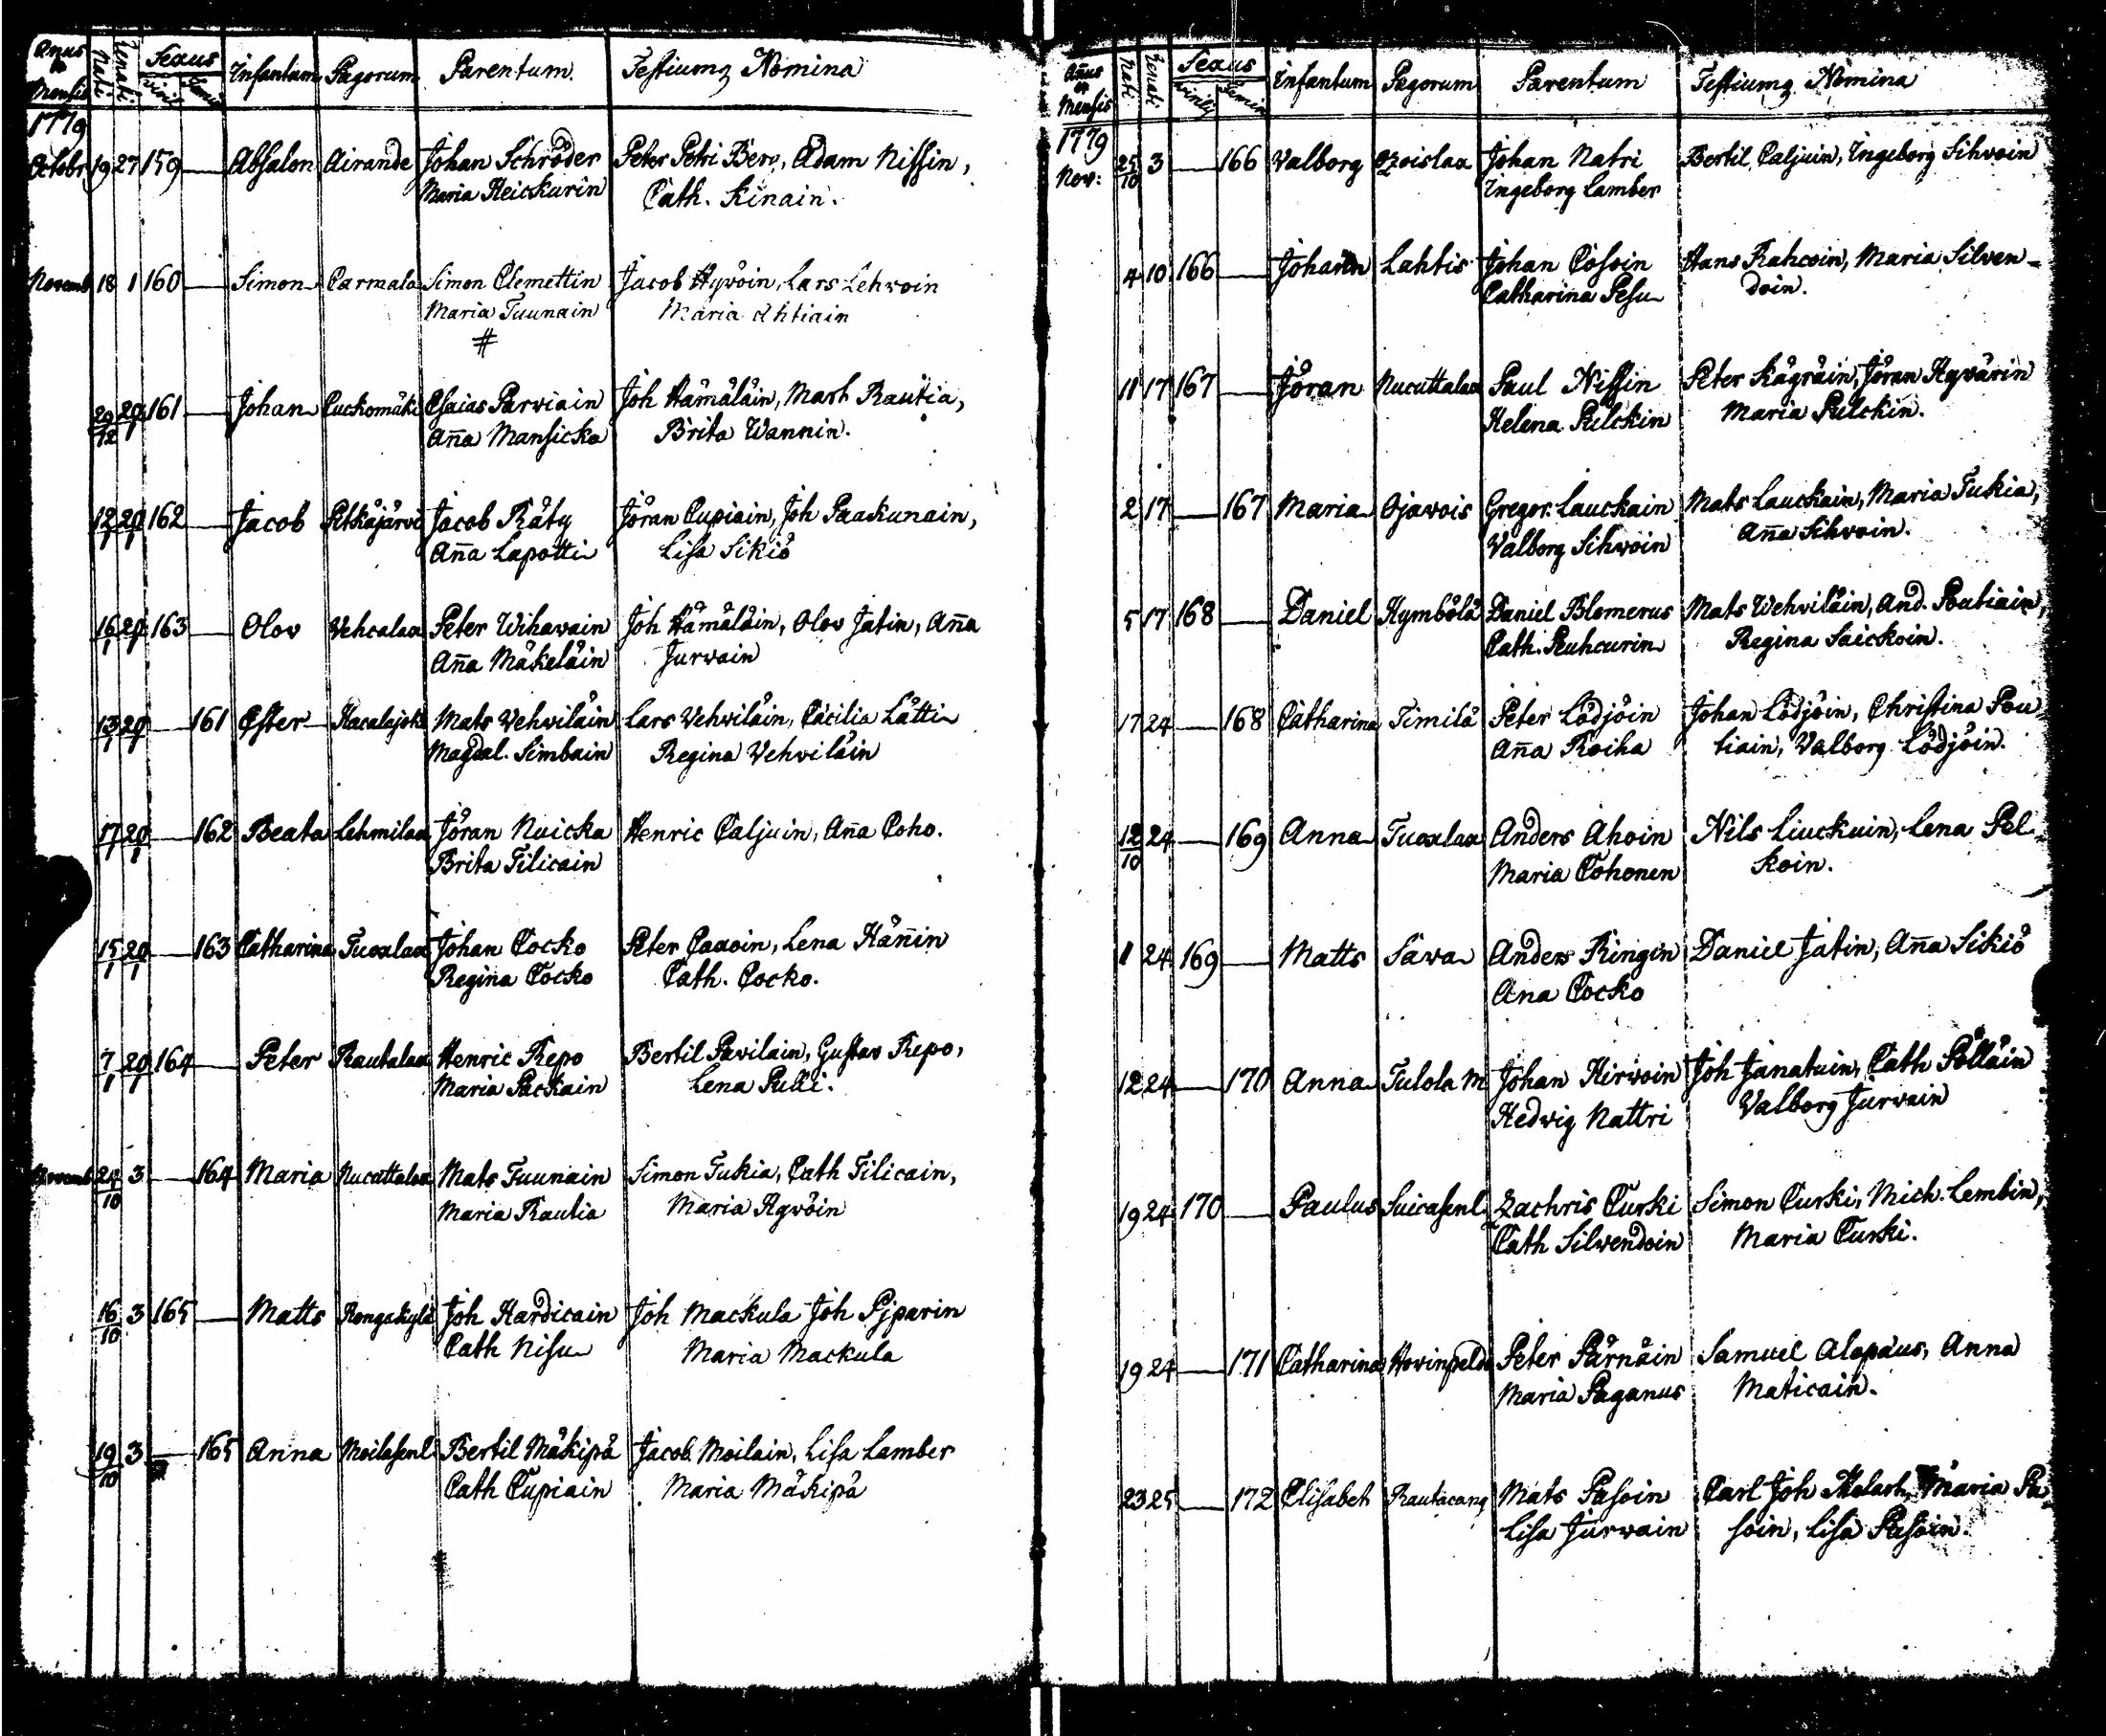 Anus & Mensis Nati Renati Sexus Infantum Pagorum Parentum Testiumq Nomina
Viril Femin
1779
Octobr 19 27 159 — Absalon Airande Johan Schröder Peter Petri Berg, Adam Nissin,
Maria Heickurin Cath. Kinain.
Novemb 18 1 160 — Simon Carmala Simon Clemettin Jacob Hyvöin, Lars Lehvoin
Maria Tuunain Maria Ahtiain
#
29/12 20/1 161 — Johan Cuckomäki Esaias Parviain Joh Hämäläin, Mart Rautia,
Aña Mansicka Brita Wannin.
12/1 20/1 162 — Jacob Pitkäjärvi Jacob Räty Jöran Cupiain, Joh Paakunain,
Aña Lapotti Lisa Sikiö
16/1 20/1 163 — Olov Vehcalax Peter Wihavain Joh Hämäläin, Olov Jatin, Aña
Aña Mäkeläin Jurvain
13/1 20/1 — 161 Ester Hacalajoki Mats Vehviläin Lars Vehviläin, Cäcilia Lätti
Magdal. Simbain Regina Vehviläin
17/1 20/1 — 162 Beata Lehmilax Jöran Nuicka Henric Caljuin, Aña Coho.
Brita Tilicain
15/1 20/1 — 163 Catharina Tuoxlax Johan Cocko Peter Caxoin, Lena Häñin
Regina Cocko Cath. Cocko.
7/1 20/1 164 — Peter Rautalax Henric Repo Bertil Pavilain, Gustav Repo,
Maria Packain Lena Pulli.
Novemb 24/10 3 — 164 Maria Nucuttalax Mats Tuunain Simon Tukia, Cath Tilicain,
Maria Rautia Maria Hyvöin
16/10 3 165 — Matts Rongakylä Joh Hardicain Joh Mackula Joh Pjparin
Cath Nisu Maria Mackula
19/10 3 — 165 Anna Moilasenl. Bertil Mäkipä Jacob Moilain, Lisa Lamber
Cath Cupiain Maria Mäkipä
Añus & Mensis Nati Renati Sexus Infantum Pagorum Parentum Testiumq Nomina
Virilis Femin
1779
Nov: 25/10 3 — 166 Valborg Johan Natri Bertil Caljuin, Ingeborg Sihvoin
Ingeborg Lamber
4 10 166 — Johann Lahtis Johan Cosoin Hans Rahcoin, Maria Silven-
Catharina Pesu doin.
11 17 167 — Jöran Nucuttalax Paul Nissin Peter Kägräin, Jöran Hyvärin
Helena Pulckin Maria Pulckin.
2 17 — 167 Maria Ojavois Gregor. Lauckain Mats Lauckain, Maria Tukia,
Valborg Sihvoin Aña Sihvoin.
5 17 168 — Daniel Hymbölä Daniel Blomerus Mats Wehviläin, And. Poutiain,
Cath. Puhcurin Regina Saickoin.
17 24 — 168 Catharina Timilä Peter Lödjöin Johan Lödjöin, Christina Pou
Aña Roiha tiain, Valborg Lödjöin.
12/10 24 — 169 Anna Tuoxlax Anders Ahoin Nils Liuckuin, Lena Pel-
Maria Cohonen koin.
1 24 169 — Matts Sava Anders Ringin Daniel Jatin, Aña Sikiö
Ana Cocko
12 24 — 170 Anna Tulola M Johan Hirvoin Joh Janatuin, Cath Pölläin
Hedvig Nattri Valborg Jurvain
19 24 170 — Paulus Suicasenl. Zachris Curki Simon Curki, Mich. Lembin,
Cath Silvendoin Maria Curki.
19 24 — 171 Catharina Hovinpeldo Peter Pärnäin Samuel Alopäus, Anna
Maria Paganus Maticain.
23 25 — 172 Elisabet Rautacang Mats Pasoin Carl Joh Maria Pa
Lisa Jurvain soin, Lisa Pasoin.